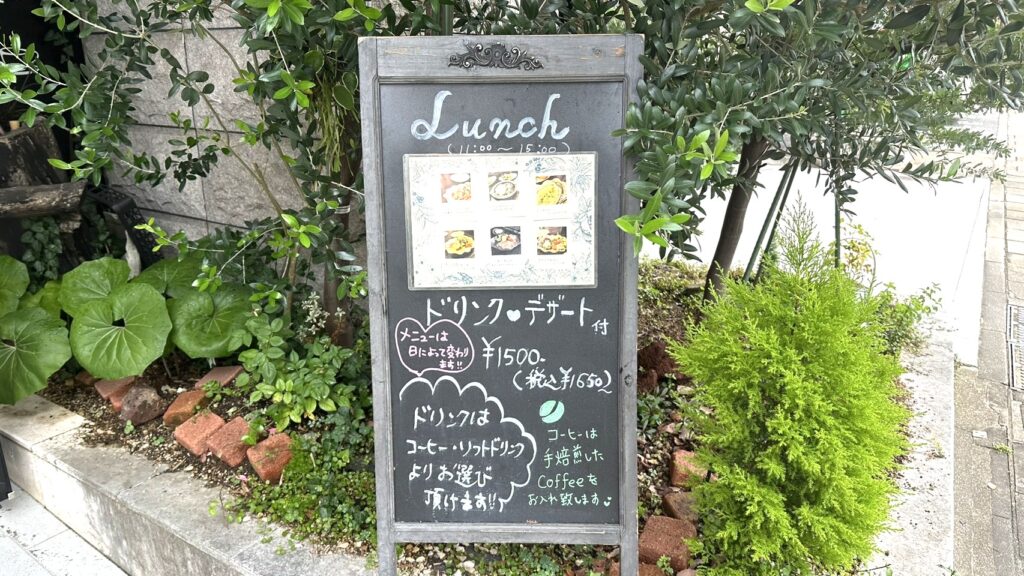 Lunch
(11:00～15:00)
ドリンク♥デザート付
メニューは
日によって変わり
ます!!
¥1500-
(税込¥1650)
ドリンクは
コーヒー・ソフトドリンク
よりお選び
頂けます!!
コーヒーは
手焙煎した
Coffeeを
お入れ致します